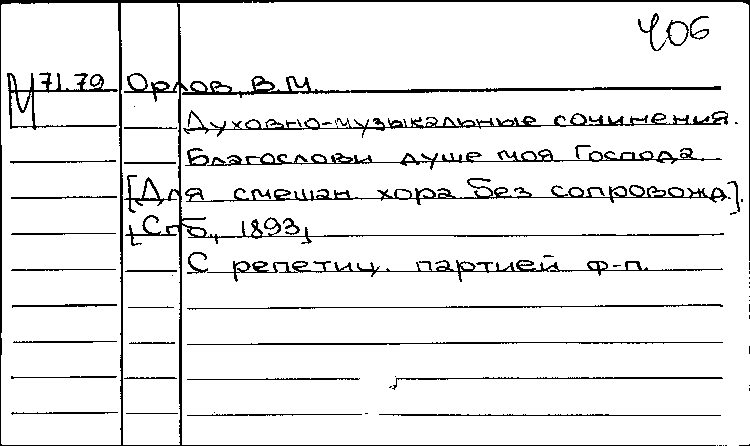 406
М 71.79 Орлов, В.М.
Духовно-музыкальные сочинения.
Благослови душе моя Господа.
[Для смешан. хора без сопровожд.].
[Спб., 1893]
С репетиц. партией ф-п.